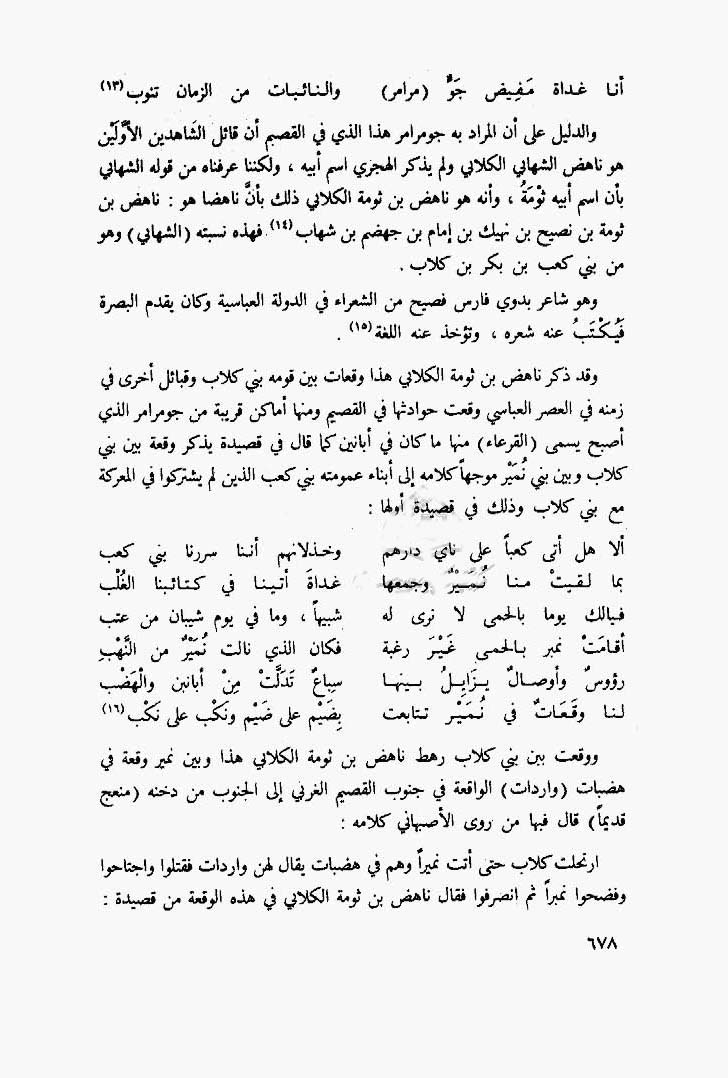 أنا غداة مَفِيض جَوٍّ (مرامر) والنائبات من الزمان تنوب(١٣)
والدليل على أن المراد به جومرامر هذا الذي في القصيم أن قائل الشَاهدين الأوَّلَيْن
هو ناهض الشهابي الكلابي ولم يذكر الهجري اسم أبيه ، ولكننا عرفناه من قوله الشهابي
بأن اسم أبيه ثوْمَةُ ، وأنه هو ناهض بن ثومة الكلابي ذلك بأنَّ ناهضا هو : ناهض بن
ثومة بن نصيح بن نهيك بن إمام بن جهضم بن شهاب(١٤) فهذه نسبته (الشهابي) وهو
من بني كعب بن بكر بن كلاب .
وهو شاعر بدوي فارس فصيح من الشعراء في الدولة العباسية وكان يقدم البصرة
فَيُكْتَبُ عنه شعره ، وتؤخذ عنه اللغة(١٥) .
وقد ذكر ناهض بن ثومة الكلابي هذا وقعات بين قومه بني كلاب وقبائل أخرى في
زمنه في العصر العباسي وقعت حوادثها في القصيم ومنها أماكن قريبة من جومرامر الذي
أصبح يسمى (القرعاء) منها ما كان في أبانين كما قال في قصيدة يذكر وقعة بين بني
كلاب وبين بني نُمَيْر موجهاً كلامه إلى أبناء عمومته بني كعب الذين لم يشتركوا في المعركة
مع بني كلاب وذلك في قصيدة أولها :
ألا هل أتى كعباً على ناي دارهم وخذلانهم أننا سررنا بني كعب
بما لقيتْ منا نُمَيْرٌ وجمعها غداةَ أتينا في كتائبنا الغُلْب
فيالك يوما بالحمى لا نرى له شبيهاً ، وما في يوم شيبان من عتب
أقامَتْ نمير بالحمى غَيْرَ رغبة فكان الذي نالت نُمَيْرٌ من النَّهْبِ
رؤوسٌ وأوصالٌ يزَايِلُ بينها سِباعٌ تَدَلَّتْ مِنْ أبانين والْهَضْب
لنا وقَعَاتٌ في نُمَيْر تتابعت بِضَيْم على ضَيْم ونَكْب على نَكْب(١٦)
ووقعت بين بني كلاب رهط ناهض بن ثومة الكلابي هذا وبين نمير وقعة في
هضبات (واردات) الواقعة في جنوب القصيم الغربي إلى الجنوب من دخنه (منعج
قديماً) قال فيها من روى الأصبهاني كلامه :
ارتحلت كلاب حتى أتت نميراً وهم في هضبات يقال لهن واردات فقتلوا واجتاحوا
وفضحوا نميراً ثم انصرفوا فقال ناهض بن ثومة الكلابي في هذه الوقعة من قصيدة :
٦٧٨